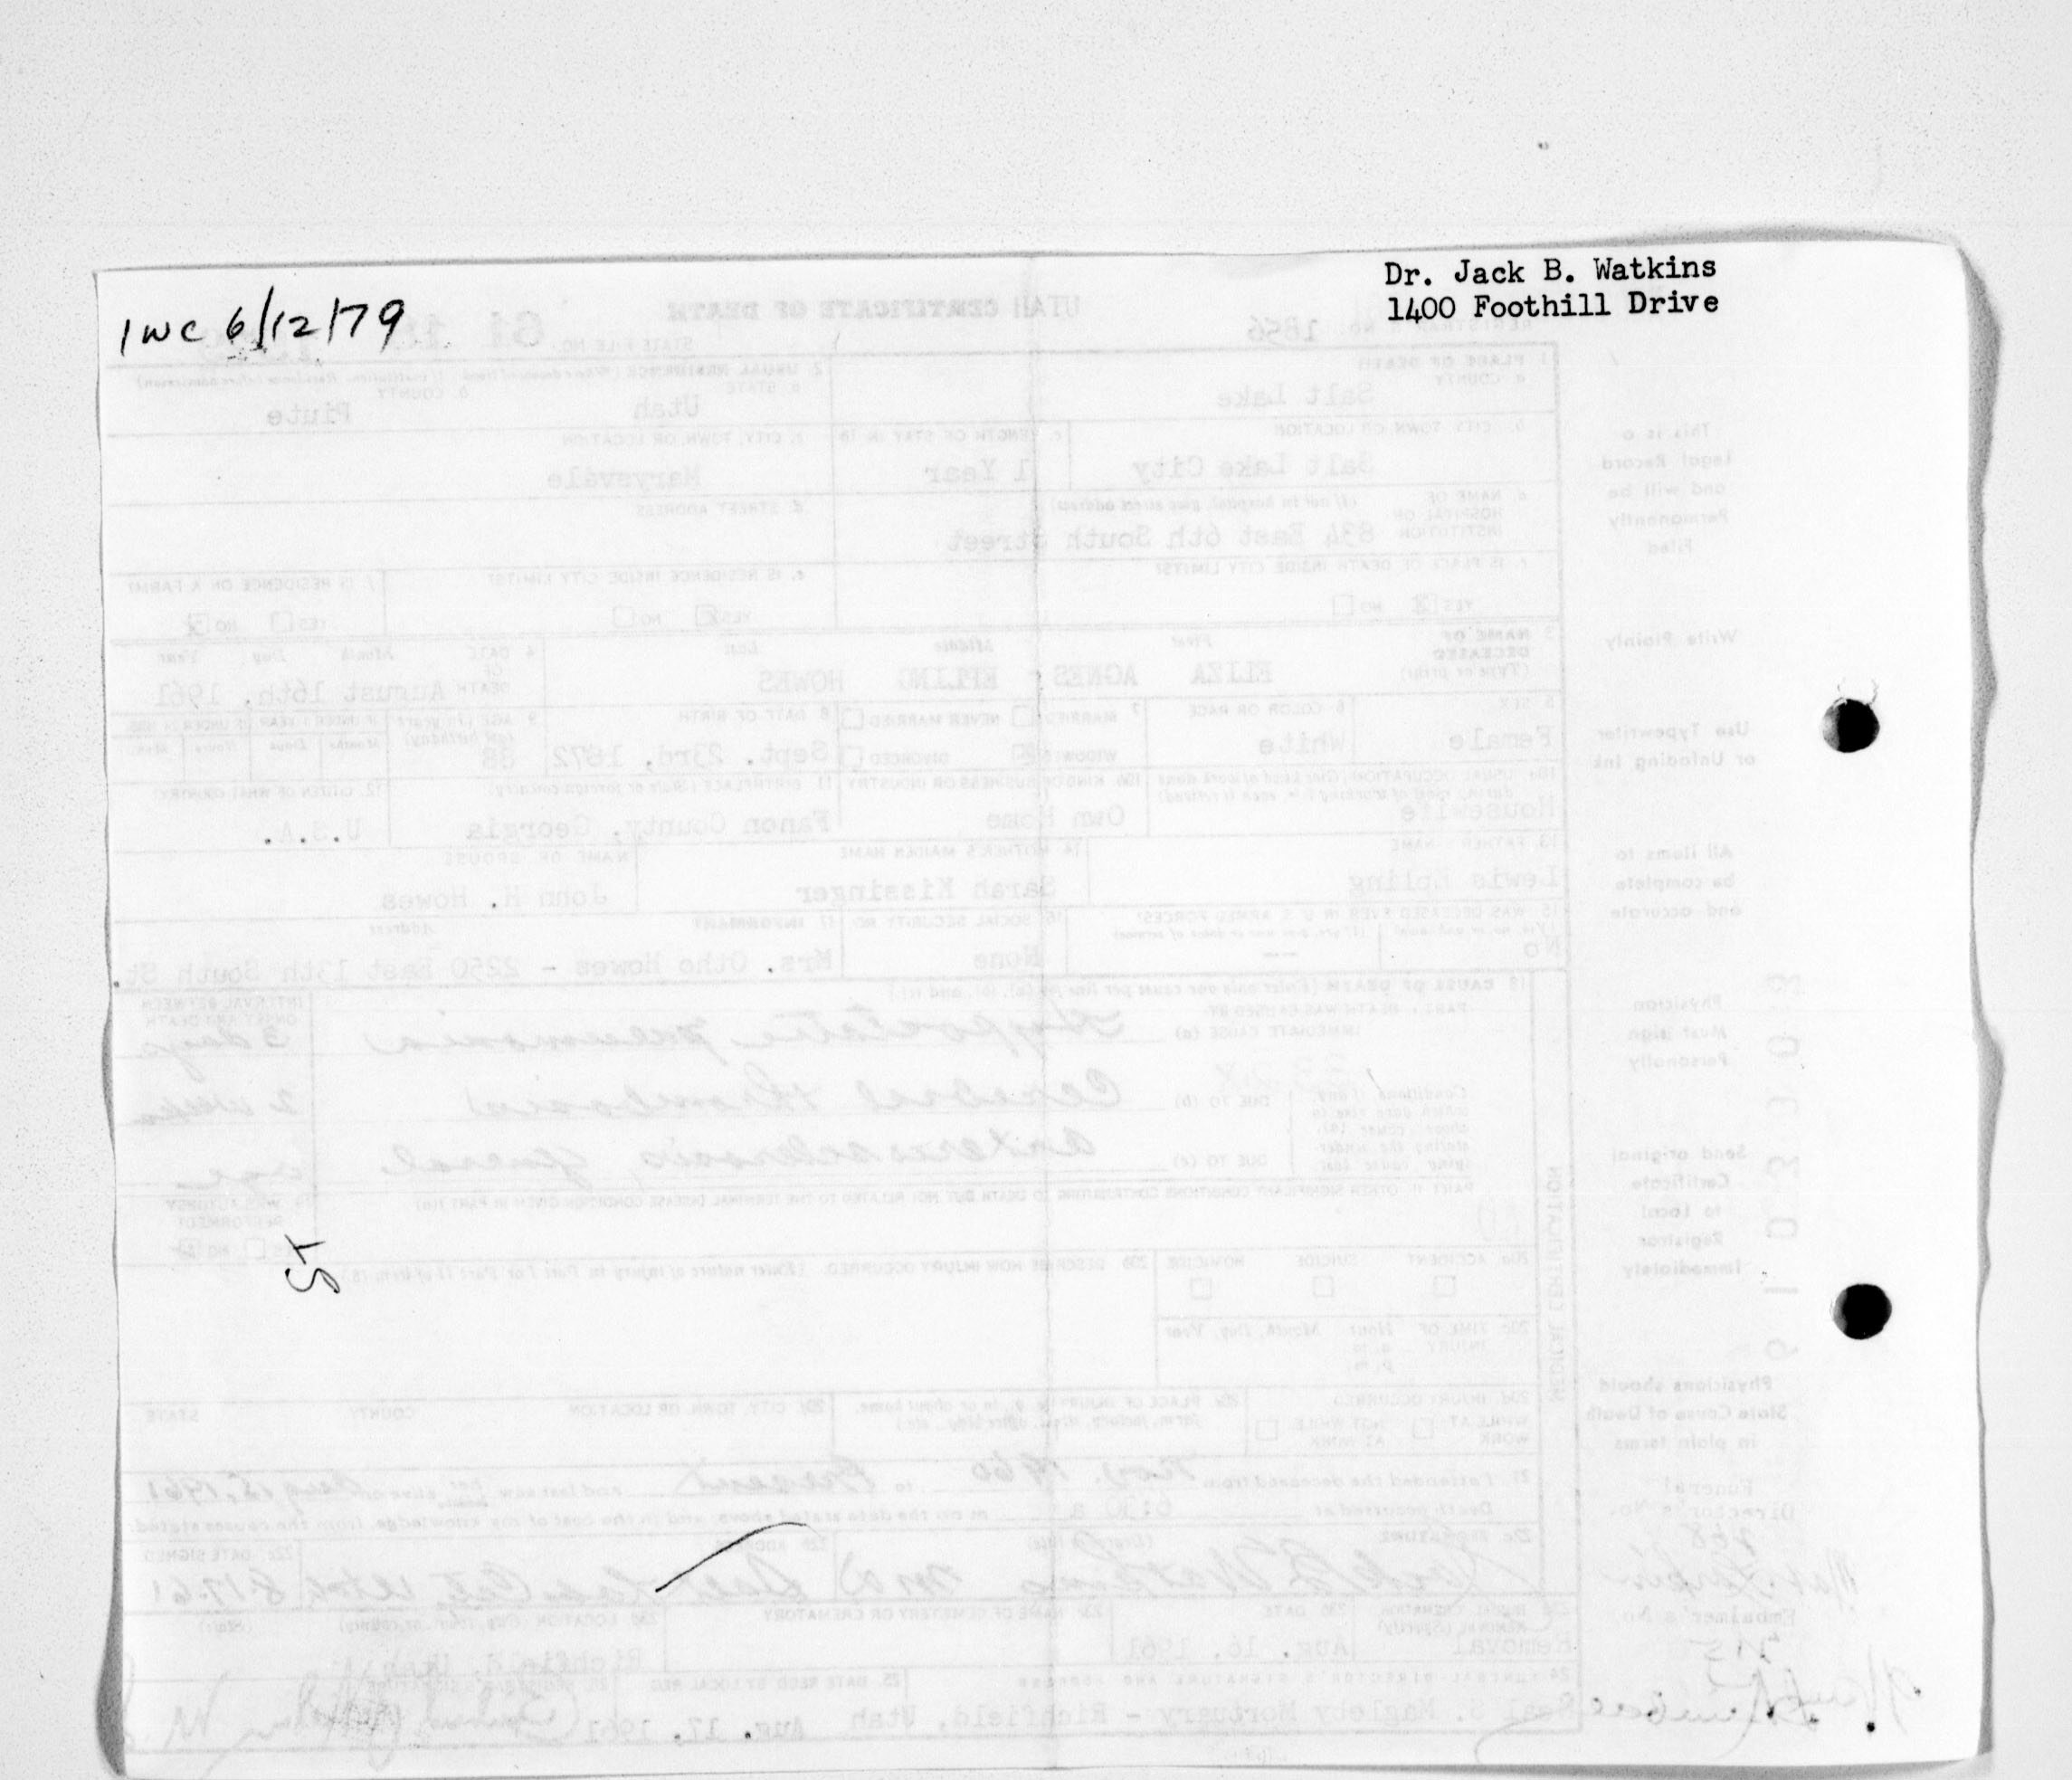 Dr. Jack B. Watkins
1400 Foothill Drive
1wc 6/12/79
UTAH CERTIFICATE OF DEATH
REGISTRAR'S NO. 1856
STATE FILE NO. 61 18
1 PLACE OF DEATH
a. COUNTY
Salt Lake
2. USUAL RESIDENCE
a. STATE
Utah
b. COUNTY
Piute
b. CITY, TOWN OR LOCATION
Salt Lake City
c. LENGTH OF STAY IN 1b
1 Year
c. CITY, TOWN, OR LOCATION
Marysvale
d. NAME OF HOSPITAL OR INSTITUTION (If not in hospital, give street address)
834 East 6th South Street
d. STREET ADDRESS
e. IS PLACE OF DEATH INSIDE CITY LIMITS?
YES NO
e. IS RESIDENCE INSIDE CITY LIMITS?
YES NO
f. IS RESIDENCE ON A FARM?
YES NO
3. NAME OF DECEASED (Type or print)
First Middle Last
ELIZA AGNES EPLING HOWES
4. DATE OF DEATH
Month Day Year
August 16th, 1961
5. SEX
Female
6. COLOR OR RACE
White
7. MARRIED NEVER MARRIED
WIDOWED DIVORCED
8. DATE OF BIRTH
Sept. 23rd, 1872
9. AGE (In years last birthday)
88
IF UNDER 1 YEAR IF UNDER 24 HRS.
Months Days Hours Min.
10a. USUAL OCCUPATION
Housewife
10b. KIND OF BUSINESS OR INDUSTRY
Own Home
11. BIRTHPLACE (State or foreign country)
Fanon County, Georgia
12. CITIZEN OF WHAT COUNTRY?
U.S.A.
13. FATHER'S NAME
Lewis Epling
14. MOTHER'S MAIDEN NAME
Sarah Kissinger
NAME OF SPOUSE
John H. Howes
15. WAS DECEASED EVER IN U.S. ARMED FORCES?
No --
16. SOCIAL SECURITY NO.
None
17. INFORMANT Address
Mrs. Otho Howes - 2250 East 13th South St.
18. CAUSE OF DEATH (Enter only one cause per line for (a), (b), and (c).)
PART I. DEATH WAS CAUSED BY:
IMMEDIATE CAUSE (a) Hypostatic pneumonia
INTERVAL BETWEEN ONSET AND DEATH
3 days
DUE TO (b) Cerebral thrombosis 2 weeks
DUE TO (c) arteriosclerosis, general
PART II. OTHER SIGNIFICANT CONDITIONS CONTRIBUTING TO DEATH BUT NOT RELATED TO THE TERMINAL DISEASE CONDITION GIVEN IN PART I(a)
19. WAS AUTOPSY PERFORMED?
YES NO
20a. ACCIDENT SUICIDE HOMICIDE
20b. DESCRIBE HOW INJURY OCCURRED. (Enter nature of injury in Part I or Part II of item 18.)
20c. TIME OF INJURY Hour Month, Day, Year
a.m.
p.m.
20d. INJURY OCCURRED
WHILE AT WORK NOT WHILE AT WORK
20e. PLACE OF INJURY
20f. CITY, TOWN, OR LOCATION COUNTY STATE
21. I attended the deceased from Nov. 1960 to Present and last saw her alive on Aug 15, 1961
Death occurred at
m on the date stated above, and to the best of my knowledge, from the causes stated.
22a. SIGNATURE
Jack B. Watkins MD
22b. ADDRESS
Salt Lake City, Utah
22c. DATE SIGNED
8-17-61
23a. BURIAL, CREMATION, REMOVAL (Specify)
Removal
23b. DATE
Aug. 16, 1961
23c. NAME OF CEMETERY OR CREMATORY
23d. LOCATION (State)
Richfield, Utah
24. FUNERAL DIRECTOR'S SIGNATURE AND ADDRESS
Neal S. Magleby Mortuary - Richfield, Utah
25. DATE REC'D BY LOCAL REG.
Aug. 17, 1961
MEDICAL CERTIFICATION
This is a
Legal Record
and will be
Permanently
Filed
Write Plainly
Use Typewriter
or Unfading Ink
All items to
be complete
and accurate
Physician
Must sign
Personally
Send original
Certificate
to Local
Registrar
Immediately
Physicians should
State Cause of Death
in plain terms
Funeral
Director's No.
Embalmer's No.